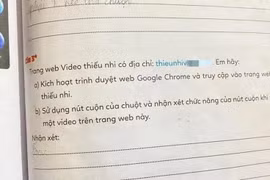 Trang web Video thiếu nhi có địa chỉ: thieunhiv . Em hãy:
a) Kích hoạt trình duyệt web Google Chrome và truy cập vào trang web
thiếu nhi.
b) Sử dụng nút cuộn của chuột và nhận xét chức năng của nút cuộn khi
một video trên trang web này.
Nhận xét: